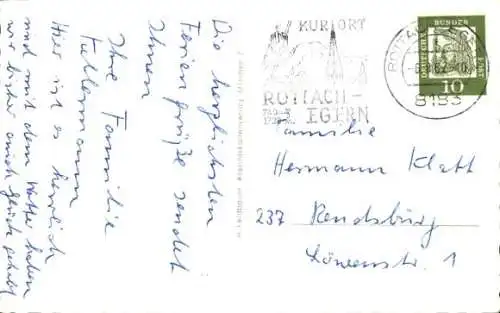 Die herzlichsten
Feriengrüße sendet
Ihnen
Ihre Familie
Kellermann
Hier ist es herrlich
und mit dem Wetter haben
wir bisher auch Glück gehabt
KURORT
ROTTACH-
EGERN
DEUTSCHE BUNDESPOST
10
8183
Familie
Hermann Klatt
237 Rendsburg
Löwenstr. 1